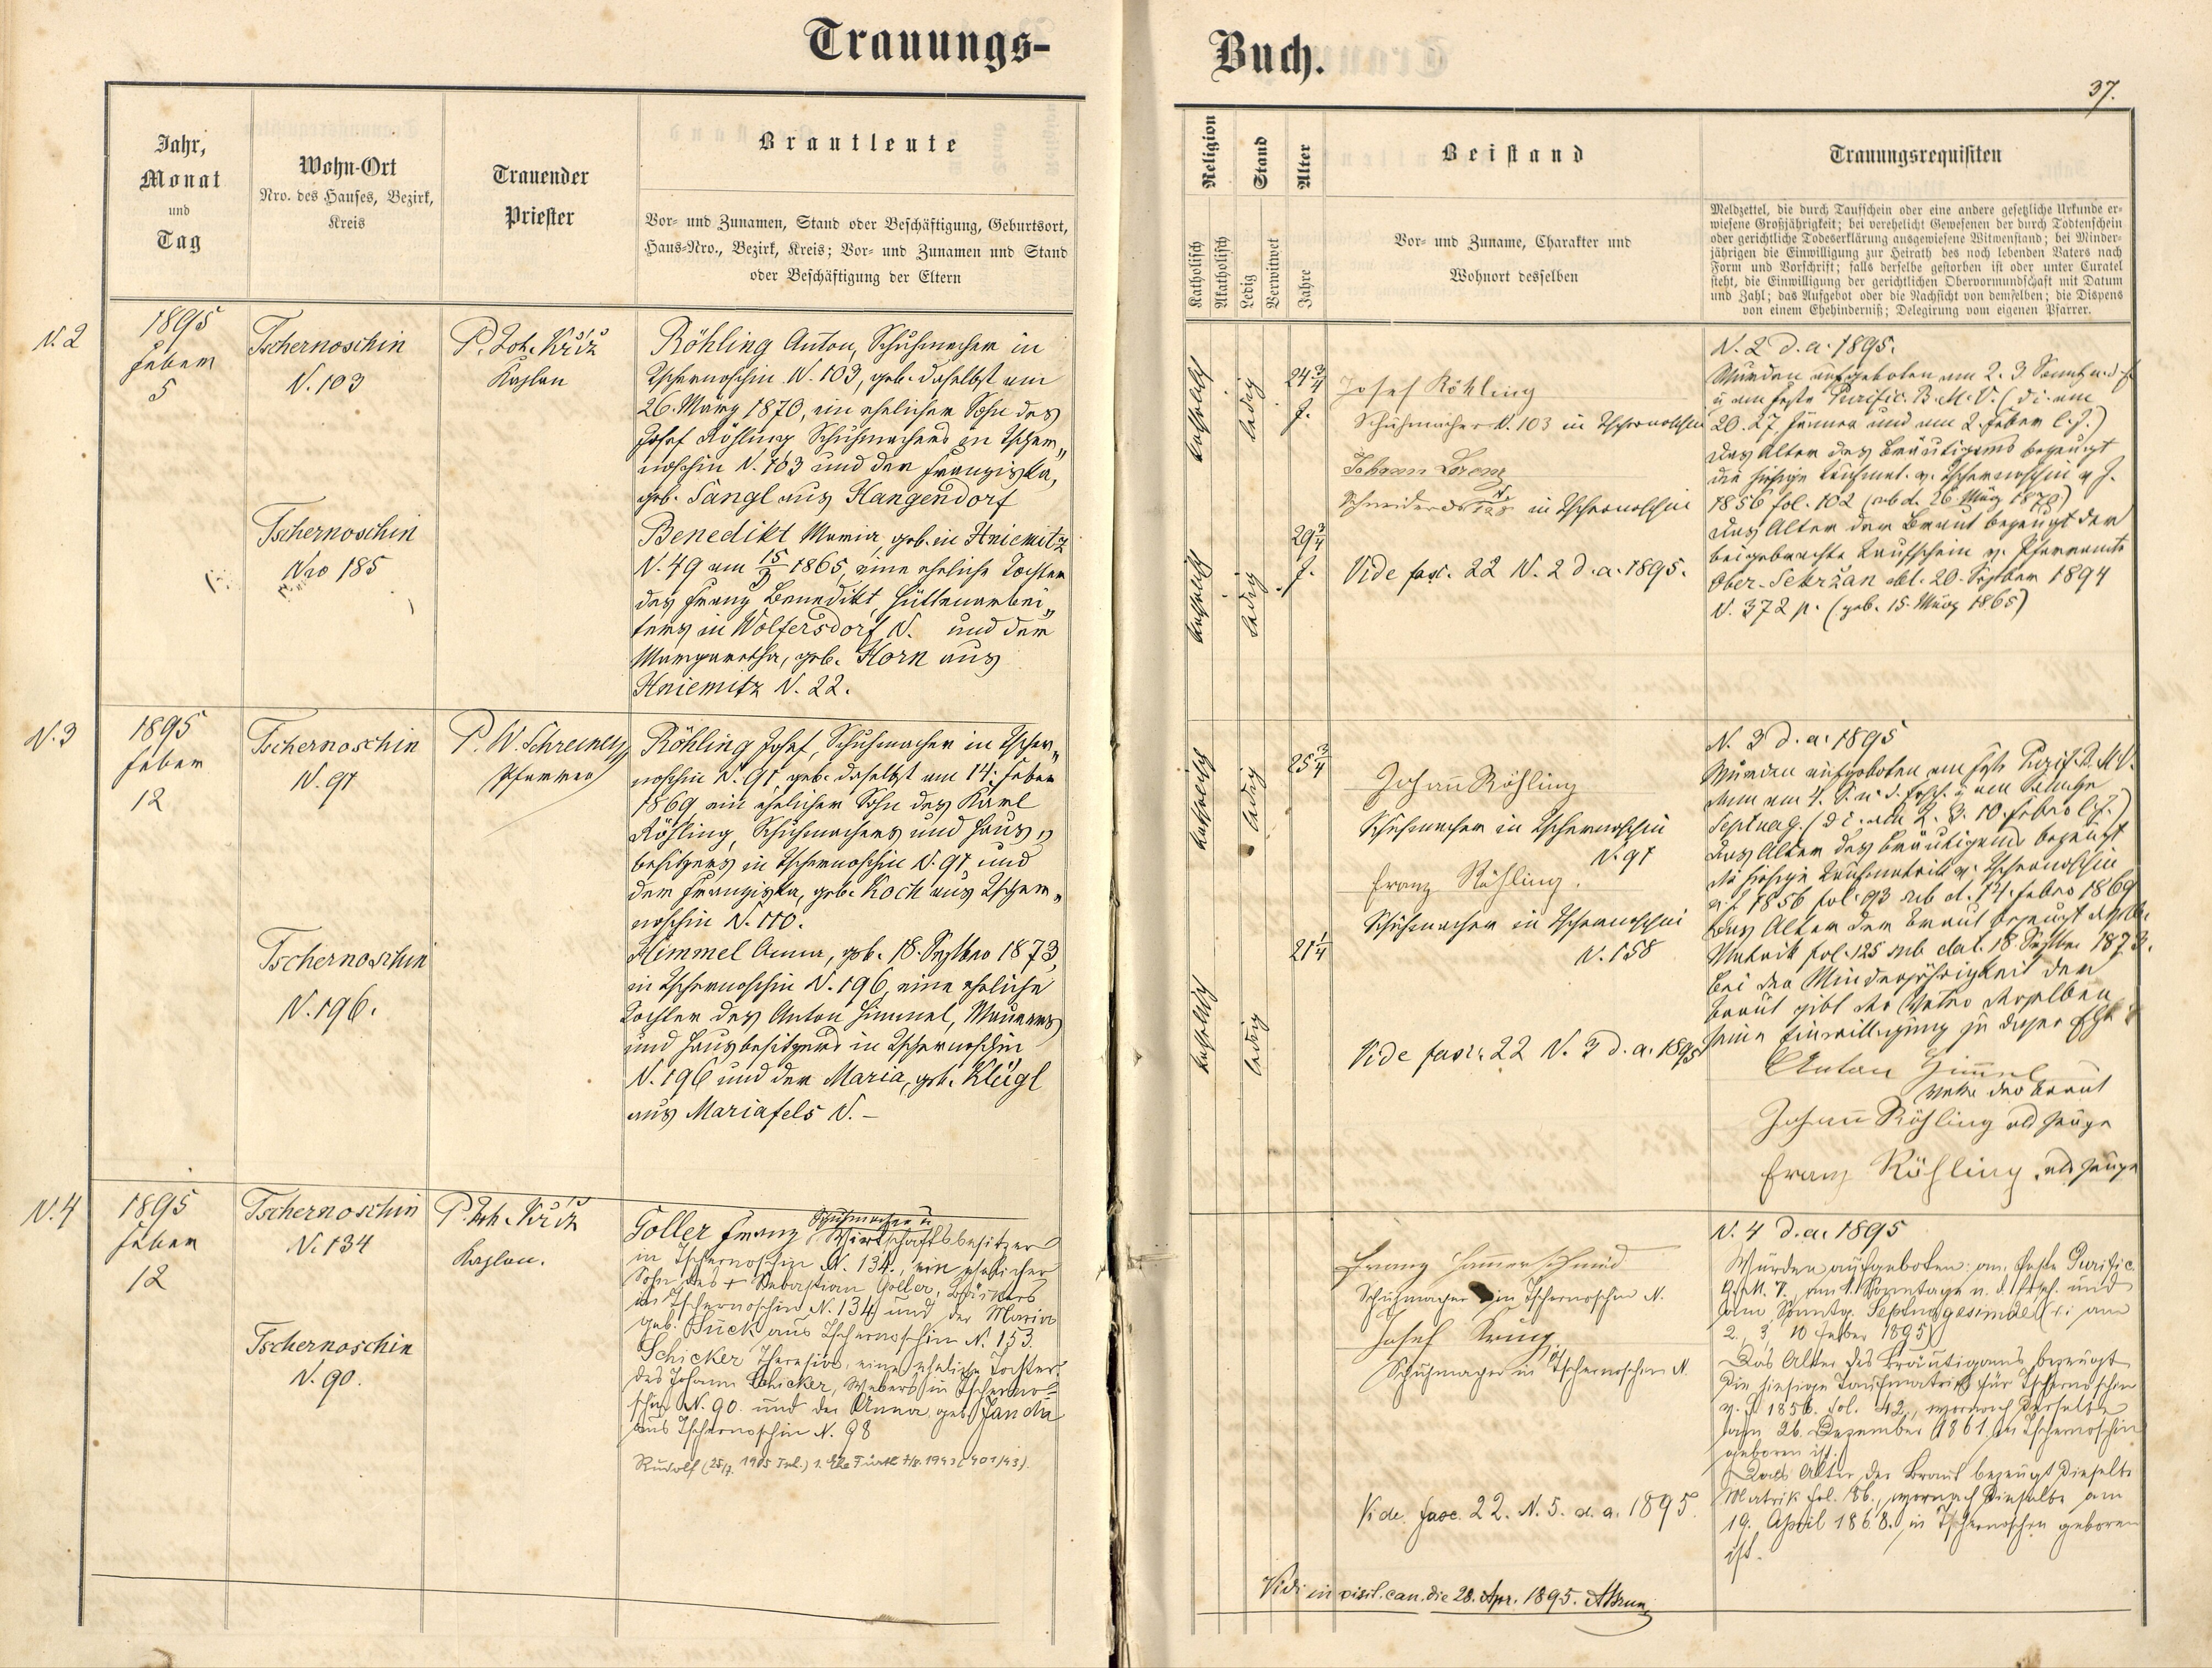 Trauungs-
Jahr,
Monat
und
Tag
Wohn-Ort
Nro. des Hauses, Bezirk,
Kreis
Trauender
Priester
Brautleute
Vor- und Zunamen, Stand oder Beschäftigung, Geburtsort,
Haus-Nro., Bezirk, Kreis; Vor- und Zunamen und Stand
oder Beschäftigung der Eltern
N. 2
1895
Feber
5
Tschernoschin
N. 103
P. Joh. Kříž
Kaplan
Röhling Anton, Schuhmacher in
Tschernoschin N. 103, geb. daselbst am
26. März 1870, ein ehelicher Sohn des
Josef Röhling Schuhmachers in Tscher„
noschin N. 103 und der Franziska,
geb. Sangl aus Hangendorf
Tschernoschin
Nro 185
Benedikt Maria, geb. in Hniemitz
N. 49 am 15/3 1865, eine eheliche Tochter
des Franz Benedikt, Hüttenarbei„
ters in Wolfersdorf N. und der
Margaretha, geb. Horn aus
Hniemitz N. 22.
N. 3
1895
Feber
12
Tschernoschin
N. 97
P. W. Schreiner
Pfarrer
Röhling Josef, Schuhmacher in Tscher„
noschin N. 97, geb. daselbst am 14. Feber
1869 ein ehelicher Sohn des Karl
Röhling, Schuhmachers und Haus„
besitzers in Tschernoschin N. 97, und
der Franziska, geb. Koch aus Tscher„
noschin N. 110.
Tschernoschin
N. 196.
Himmel Anna, geb. 18. Septber 1873,
in Tschernoschin N. 196, eine eheliche
Tochter des Anton Himmel, Maurers
und Hausbesitzers in Tschernoschin
N. 196 und der Maria, geb. Klügl
aus Mariafels N. –
N. 4
1895
Feber
12
Tschernoschin
N. 134
P. Joh. Kříž
Kaplan.
Schuhmacher u.
Goller Franz Wirtschaftsbesitzer
in Tschernoschin N. 134., ein ehelicher
Sohn des + Sebastian Goller, Bäckers
in Tschernoschin N. 134 und der Maria
geb. Suck aus Tschernoschin N. 153.
Tschernoschin
N. 90.
Schicker Theresia, eine eheliche Tochter
des Johann Schicker, Webers in Tscherno-
schin N. 90. und der Anna geb. Janda
aus Tschernoschin N. 98
Rudolf (25/7. 1905 Tsch.) 1. Ehe Fürth 7/8. 1943 (401/43).
Buch.
37.
Religion
Stand
Alter
Katholisch
Akatholisch
Ledig
Verwitwet
Jahre
Beistand
Vor- und Zuname, Charakter und
Wohnort desselben
Trauungsrequisiten
Meldzettel, die durch Taufschein oder eine andere gesetzliche Urkunde er-
wiesene Großjährigkeit; bei verehelicht Gewesenen der durch Todtenschein
oder gerichtliche Todeserklärung ausgewiesene Witwenstand; bei Minder-
jährigen die Einwilligung zur Heirath des noch lebenden Vaters nach
Form und Vorschrift; falls derselbe gestorben ist oder unter Curatel
steht, die Einwilligung der gerichtlichen Obervormundschaft mit Datum
und Zahl; das Aufgebot oder die Nachsicht von demselben; die Dispens
von einem Ehehinderniß; Delegirung vom eigenen Pfarrer.
katholisch
ledig
24 3/4
J.
Josef Röhling
Schuhmacher N. 103 in Tschernoschin
Johann Lorenz
Schneider in Tschernoschin
katholisch
ledig
29 3/4
J.
Vide fasc. 22 N. 2 d. a. 1895.
N. 2 d. a. 1895.
Wurden aufgeboten am 2. 3 Sonnt. n. d. f.
u am Feste Purific. B. M. V. (d i. am
20. 27 Jänner und am 2. Feber l. J.)
Das Alter des Bräutigams bezeugt
die hiesige Taufmat. v. Tschernoschin v. J.
1856 fol. 102 (sub d. 26 März 1870)
Das Alter der Braut bezeugt der
beigebrachte Taufschein v. Pfarramte
Ober-Sekržan dd. 20. Septber 1894
N. 372 p. (geb. 15. März 1865)
katholisch
ledig
25 3/4
Johann Röhling
Schuhmacher in Tschernoschin
N. 97
Franz Röhling.
Schuhmacher in Tschernoschin
N. 158
katholisch
ledig
21 1/4
Vide fasc. 22 N. 3 d. a. 1895
N. 3 d. a. 1895
Wurden aufgeboten am Feste Purif. B. M. V.
dann am 4. S. n. d. Ersch. u am Sonntage
Septuag. (d i. am 2. 3. 10. Feber l. J.)
Das Alter des Bräutigams bezeugt
die hiesige Taufmatrik v. Tschernoschin
v. J. 1856 fol. 93 sub d. 14. Feber 1869
Das Alter der Braut bezeugt dieselbe
Matrik fol. 125 sub dat. 18 Septber 1873.
Bei der Minderjährigkeit der
Braut gibt der Vater derselben
seine Einwilligung zu dieser Ehe
Anton Himmel
Vater der Braut
Johann Röhling als Zeuge
Franz Röhling, als Zeuge
Franz Hammerschmid
Schuhmacher in Tschernoschin N.
Josef Krug
Schuhmacher in Tschernoschin N.
Vide. fasc. 22. N. 5. d. a. 1895.
N. 4 d. a. 1895
Wurden aufgeboten: am Feste Purific.
B. M. V., am 4. Sonntage n. d. Ersch. und
am Sonntg. Septuagesimae (d. i. am
2., 3., 10 Feber 1895)
Das Alter des Bräutigams bezeugt
die hiesige Taufmatrik für Tschernoschin
v. J. 1856. fol. 42., wornach derselbe
am 26. Dezember 1861. in Tschernoschin
geboren ist.
Das Alter der Braut bezeugt dieselbe
Matrik fol. 86., wornach dieselbe am
19. April 1868. in Tschernoschin geboren
ist.
Vidi in visit. can. die 28. Apr. 1895.